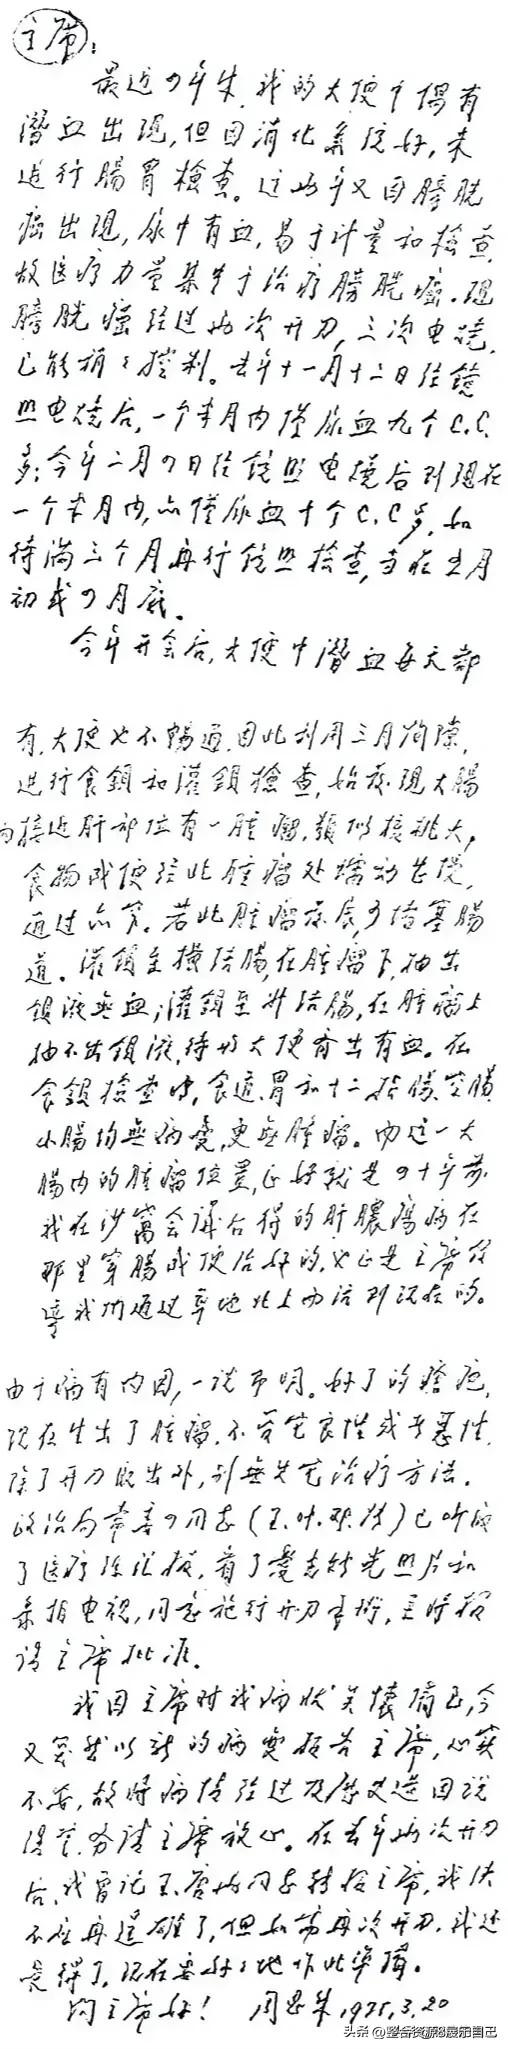 主席：
最近四年来，我的大便中偶有
潜血出现，但因消化系统好，未
进行肠胃检查。这两年又因膀胱
癌出现，尿中有血，易于计量和检查，
故医疗力量集中于治疗膀胱癌。现
膀胱癌经过两次开刀，三次电烧，
已能稍稍控制。去年十一月十二日经镜
照电烧后，一个半月内仅尿血九个C.C.
多；今年二月四日经镜照电烧后到现在
一个半月内，亦仅尿血十个C.C多，如
待满三个月再行镜照检查，当在五月
初或四月底。
今年开会后，大便中潜血每天都
有，大便也不畅通。因此利用三月间隙，
进行食钡和灌钡检查，始发现大肠
内接近肝部位有一肿瘤，类似核桃大，
食物成便经此肿瘤处蠕动甚慢，
通过亦窄。若此肿瘤发展，可堵塞肠
道。灌钡至横结肠，在肿瘤下，抽出
钡液无血；灌钡至升结肠，在肿瘤上
抽不出钡液，待与大便齐出有血。在
食钡检查中，食道、胃和十二指肠、空肠、
小肠均无病变，更无肿瘤。而这一大
肠内的肿瘤位置，正好就是四十年前
我在沙窝会议后得的肝脓疡病在
那里穿肠成便治好的，也正是主席领
导我们通过草地北上而活到现在的。
由于病有内因，一说即明。好了的疮疤，
现在生出了肿瘤，不管它良性或者恶性，
除了开刀取出外，别无其它治疗方法。
政治局常委四同志（王、叶、邓、张）已听取
了医疗组汇报，看了爱克斯光照片和
录相电视，同意施行开刀手术，并将报
请主席批准。
我因主席对我病状关怀备至，今
又突然以新的病变报告主席，心实
不安，故将病情经过及历史造因说
清楚，务请主席放心。在去年两次开刀
后，我曾托王、唐两同志转报主席，我决
不应再逞雄了，但如需再次开刀，我还
受得了。现在要好好地作此准备。
问主席好！ 周恩来 1975.3.20
头条 @